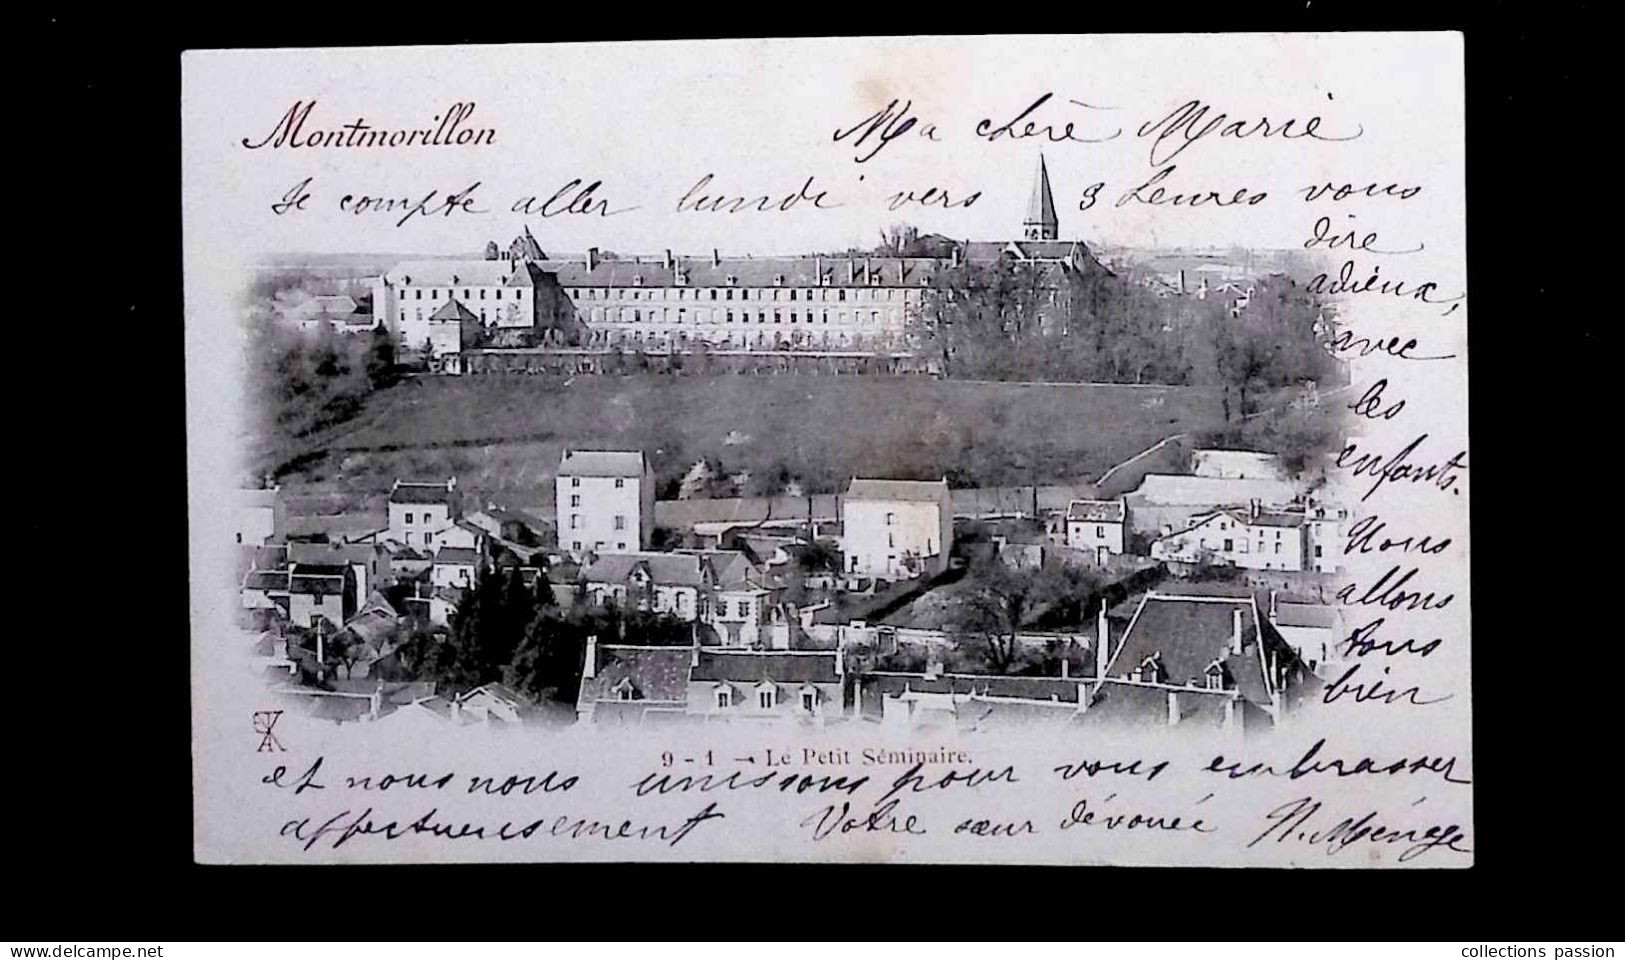 Montmorillon
Ma chère Marie
Je compte aller lundi vers 3 heures vous
dire
adieux,
avec
les
enfants.
Nous
allons
tous
bien
9 - 1 — Le Petit Séminaire.
et nous nous unissons pour vous embrasser
affectueusement Votre sœur dévouée N. Ménage
www.delcampe.net
collections passion